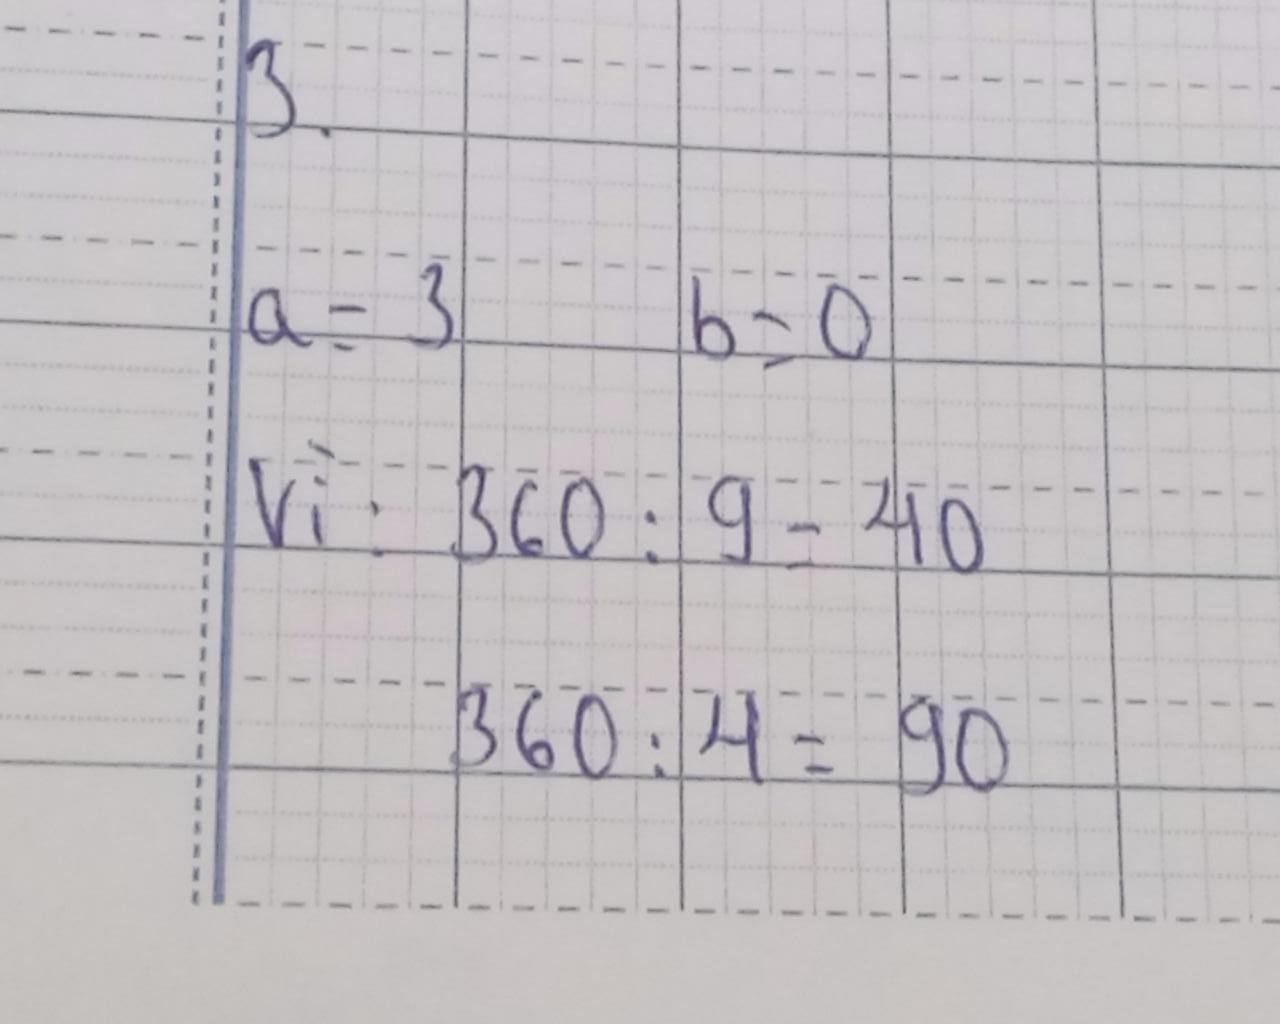 3.
a = 3 b = 0
Vì : 360 : 9 = 40
360 : 4 = 90